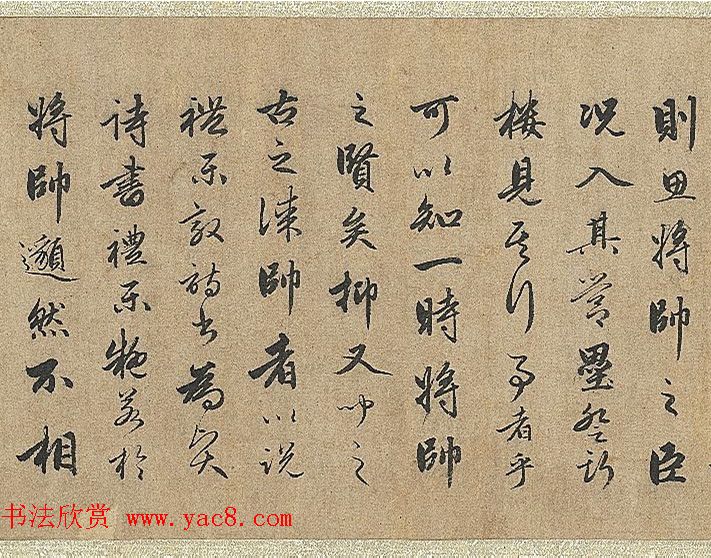 則思將帥之臣
况入其營壘登
樓見其行事者乎
可以知一時將帥
之賢矣抑又聞之
古之謀帥者以説
禮樂敦詩書為
詩書禮樂若於
將帥邈然不相
书法欣赏 www.yac8.com